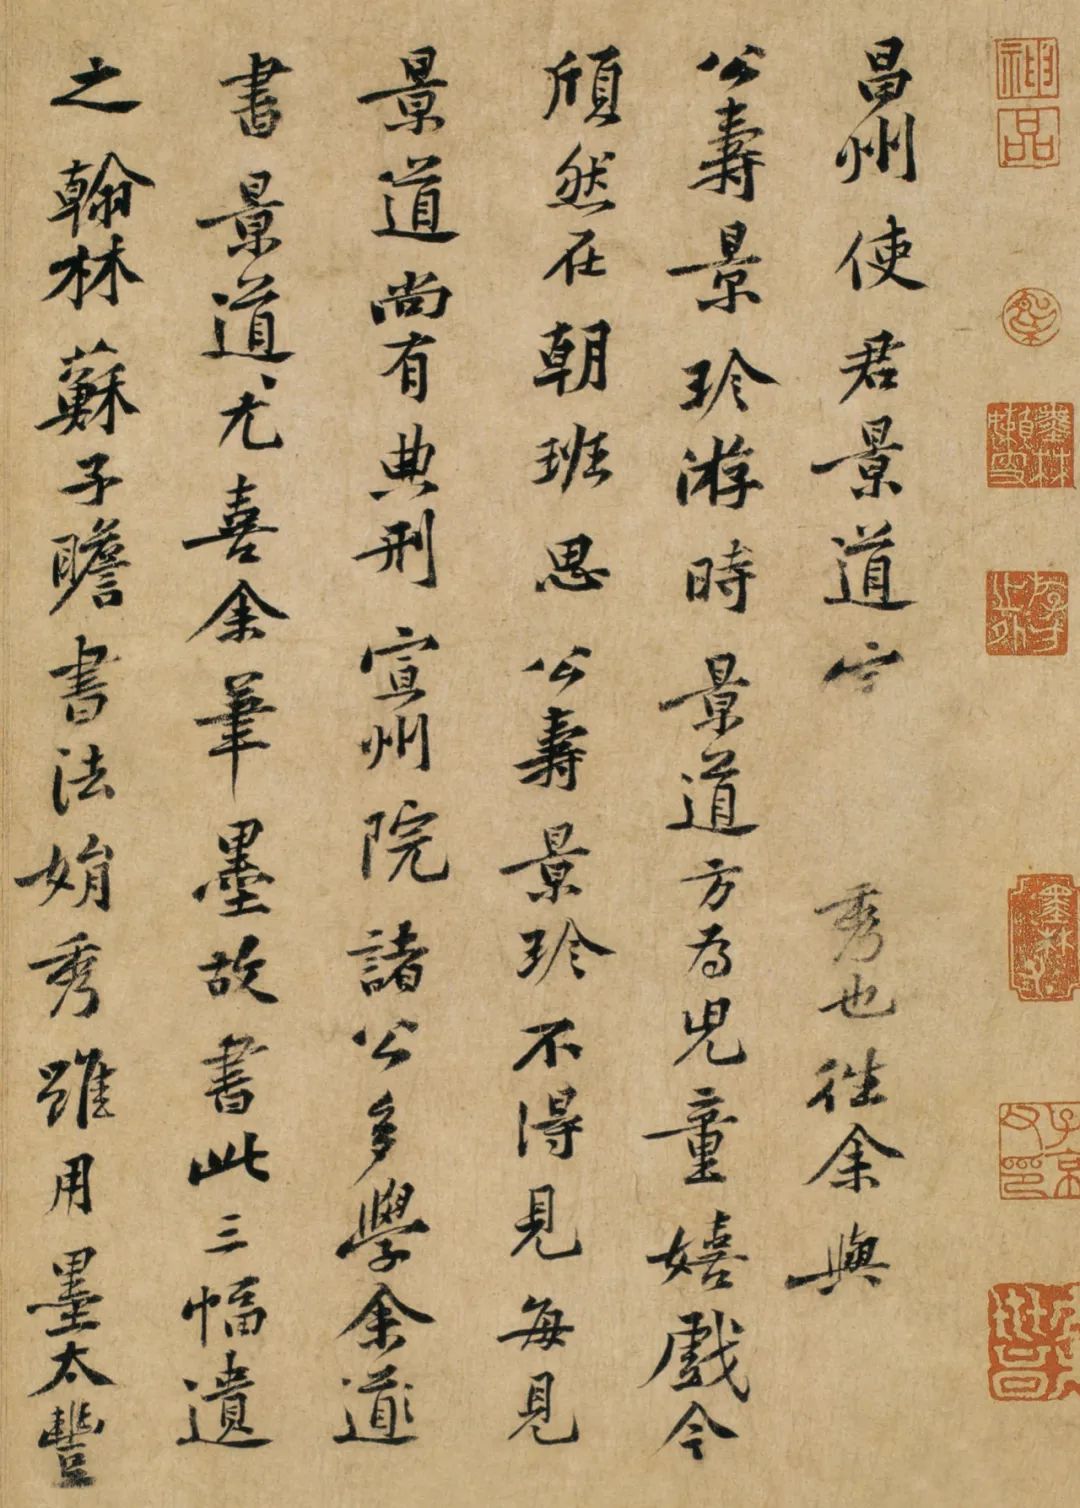 神品
墨林嬾叟
子京父印
昌州使君景道秀也往余與
公壽景珍游時景道方為兒童嬉戲今
頎然在朝班思公壽景珍不得見每見
景道尚有典刑宣州院諸公多學余道
書景道尤喜余筆墨故書此三幅遺
之翰林蘇子瞻書法娟秀雖用墨太豐